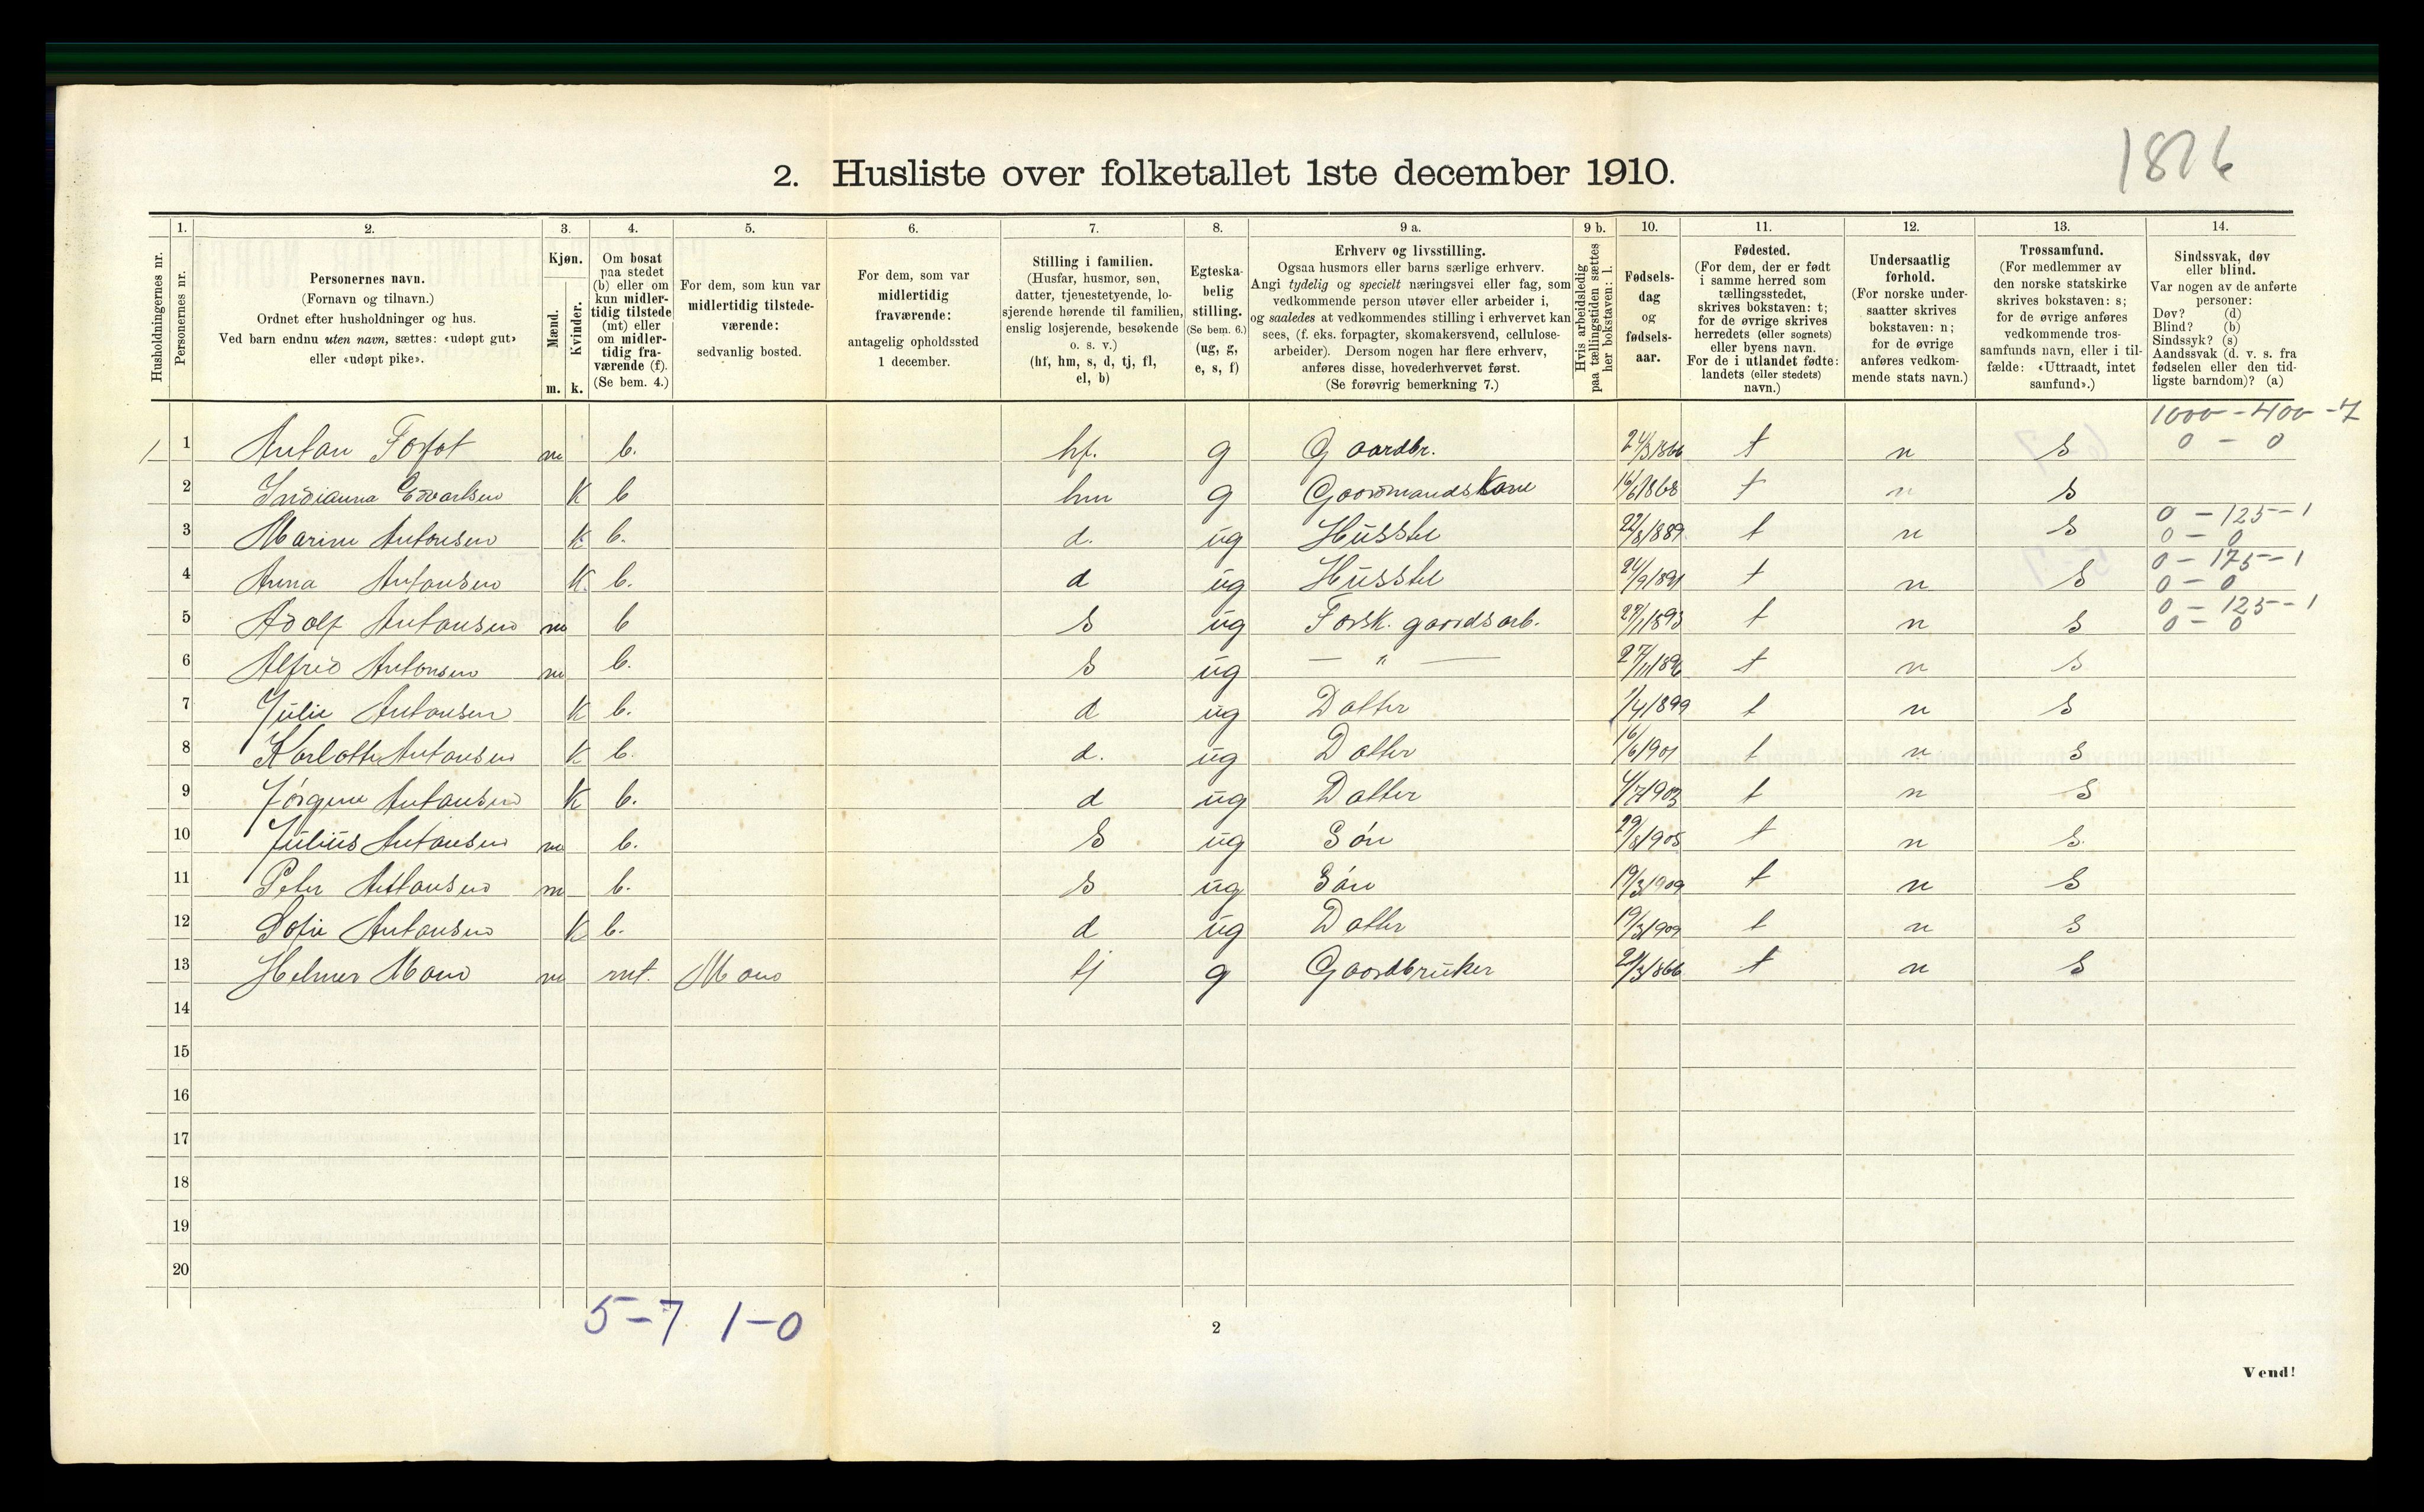 1826
2. Husliste over folketallet 1ste december 1910.
Husholdningernes nr.
1.
Personernes nr.
2.
Personernes navn.
(Fornavn og tilnavn.)
Ordnet efter husholdninger og hus.
Ved barn endnu uten navn, sættes: «udøpt gut»
eller «udøpt pike».
3.
Kjøn.
Mænd.
Kvinder.
m. k.
4.
Om bosat
paa stedet
(b) eller om
kun midler-
tidig tilstede
(mt) eller
om midler-
tidig fra-
værende (f).
(Se bem. 4.)
5.
For dem, som kun var
midlertidig tilstede-
værende:
sedvanlig bosted.
6.
For dem, som var
midlertidig
fraværende:
antagelig opholdssted
1 december.
7.
Stilling i familien.
(Husfar, husmor, søn,
datter, tjenestetyende, lo-
sjerende hørende til familien,
enslig losjerende, besøkende
o. s. v.)
(hf, hm, s, d, tj, fl,
el, b)
8.
Egteska-
belig
stilling.
(Se bem. 6.)
(ug, g,
e, s, f)
9 a.
Erhverv og livsstilling.
Ogsaa husmors eller barns særlige erhverv.
Angi tydelig og specielt næringsvei eller fag, som
vedkommende person utøver eller arbeider i,
og saaledes at vedkommendes stilling i erhvervet kan
sees, (f. eks. forpagter, skomakersvend, cellulose-
arbeider). Dersom nogen har flere erhverv,
anføres disse, hovederhvervet først.
(Se forøvrig bemerkning 7.)
9 b.
Hvis arbeidsledig
paa tællingstiden sættes
her bokstaven: l.
10.
Fødsels-
dag
og
fødsels-
aar.
11.
Fødested.
(For dem, der er født
i samme herred som
tællingsstedet,
skrives bokstaven: t;
for de øvrige skrives
herredets (eller sognets)
eller byens navn.
For de i utlandet fødte:
landets (eller stedets)
navn.)
12.
Undersaatlig
forhold.
(For norske under-
saatter skrives
bokstaven: n;
for de øvrige
anføres vedkom-
mende stats navn.)
13.
Trossamfund.
(For medlemmer av
den norske statskirke
skrives bokstaven: s;
for de øvrige anføres
vedkommende tros-
samfunds navn, eller i til-
fælde: «Uttraadt, intet
samfund».)
14.
Sindssvak, døv
eller blind.
Var nogen av de anførte
personer:
Døv? (d)
Blind? (b)
Sindssyk? (s)
Aandssvak (d. v. s. fra
fødselen eller den tid-
ligste barndom)? (a)
1000 - 400 - 7
1 1 Anton Forfot m b. hf. g Gaardbr. 24/3 1866 t n s 0 - 0
2 Indianna Edvartsen K b hm g Gaardmandskone 16/6 1868 t n s
0 - 125 - 1
3 Marine Antonsen K b. d. ug Husstel 22/8 1889 t n s 0 - 0
0 - 175 - 1
4 Anna Antonsen K. b. d ug Husstel 24/9 1891 t n s 0 - 0
0 - 125 - 1
5 Adolf Antonsen m b s ug Forsk. gaardsarb. 27/1 1893 t n s 0 - 0
6 Alfred Antonsen m b. s ug — " — 27/11 1896 t n s
7 Julie Antonsen K b. d ug Datter 1/4 1899 t n s
8 Karlotte Antonsen K b. d. ug Datter 16/6 1901 t n s
9 Jørgine Antonsen K b. d ug Datter 4/7 1903 t n s
10 Julius Antonsen m b. s ug Søn 29/8 1905 t n s.
11 Peter Antonsen m b. s ug Søn 19/3 1909 t n s
12 Sofie Antonsen K b. d ug Datter 19/3 1909 t n s
13 Helmer Moen m mt. Moen tj g Gaardbruker 24/3 1866 t n s
14
15
16
17
18
19
20
5-7 1-0
2
Vend!